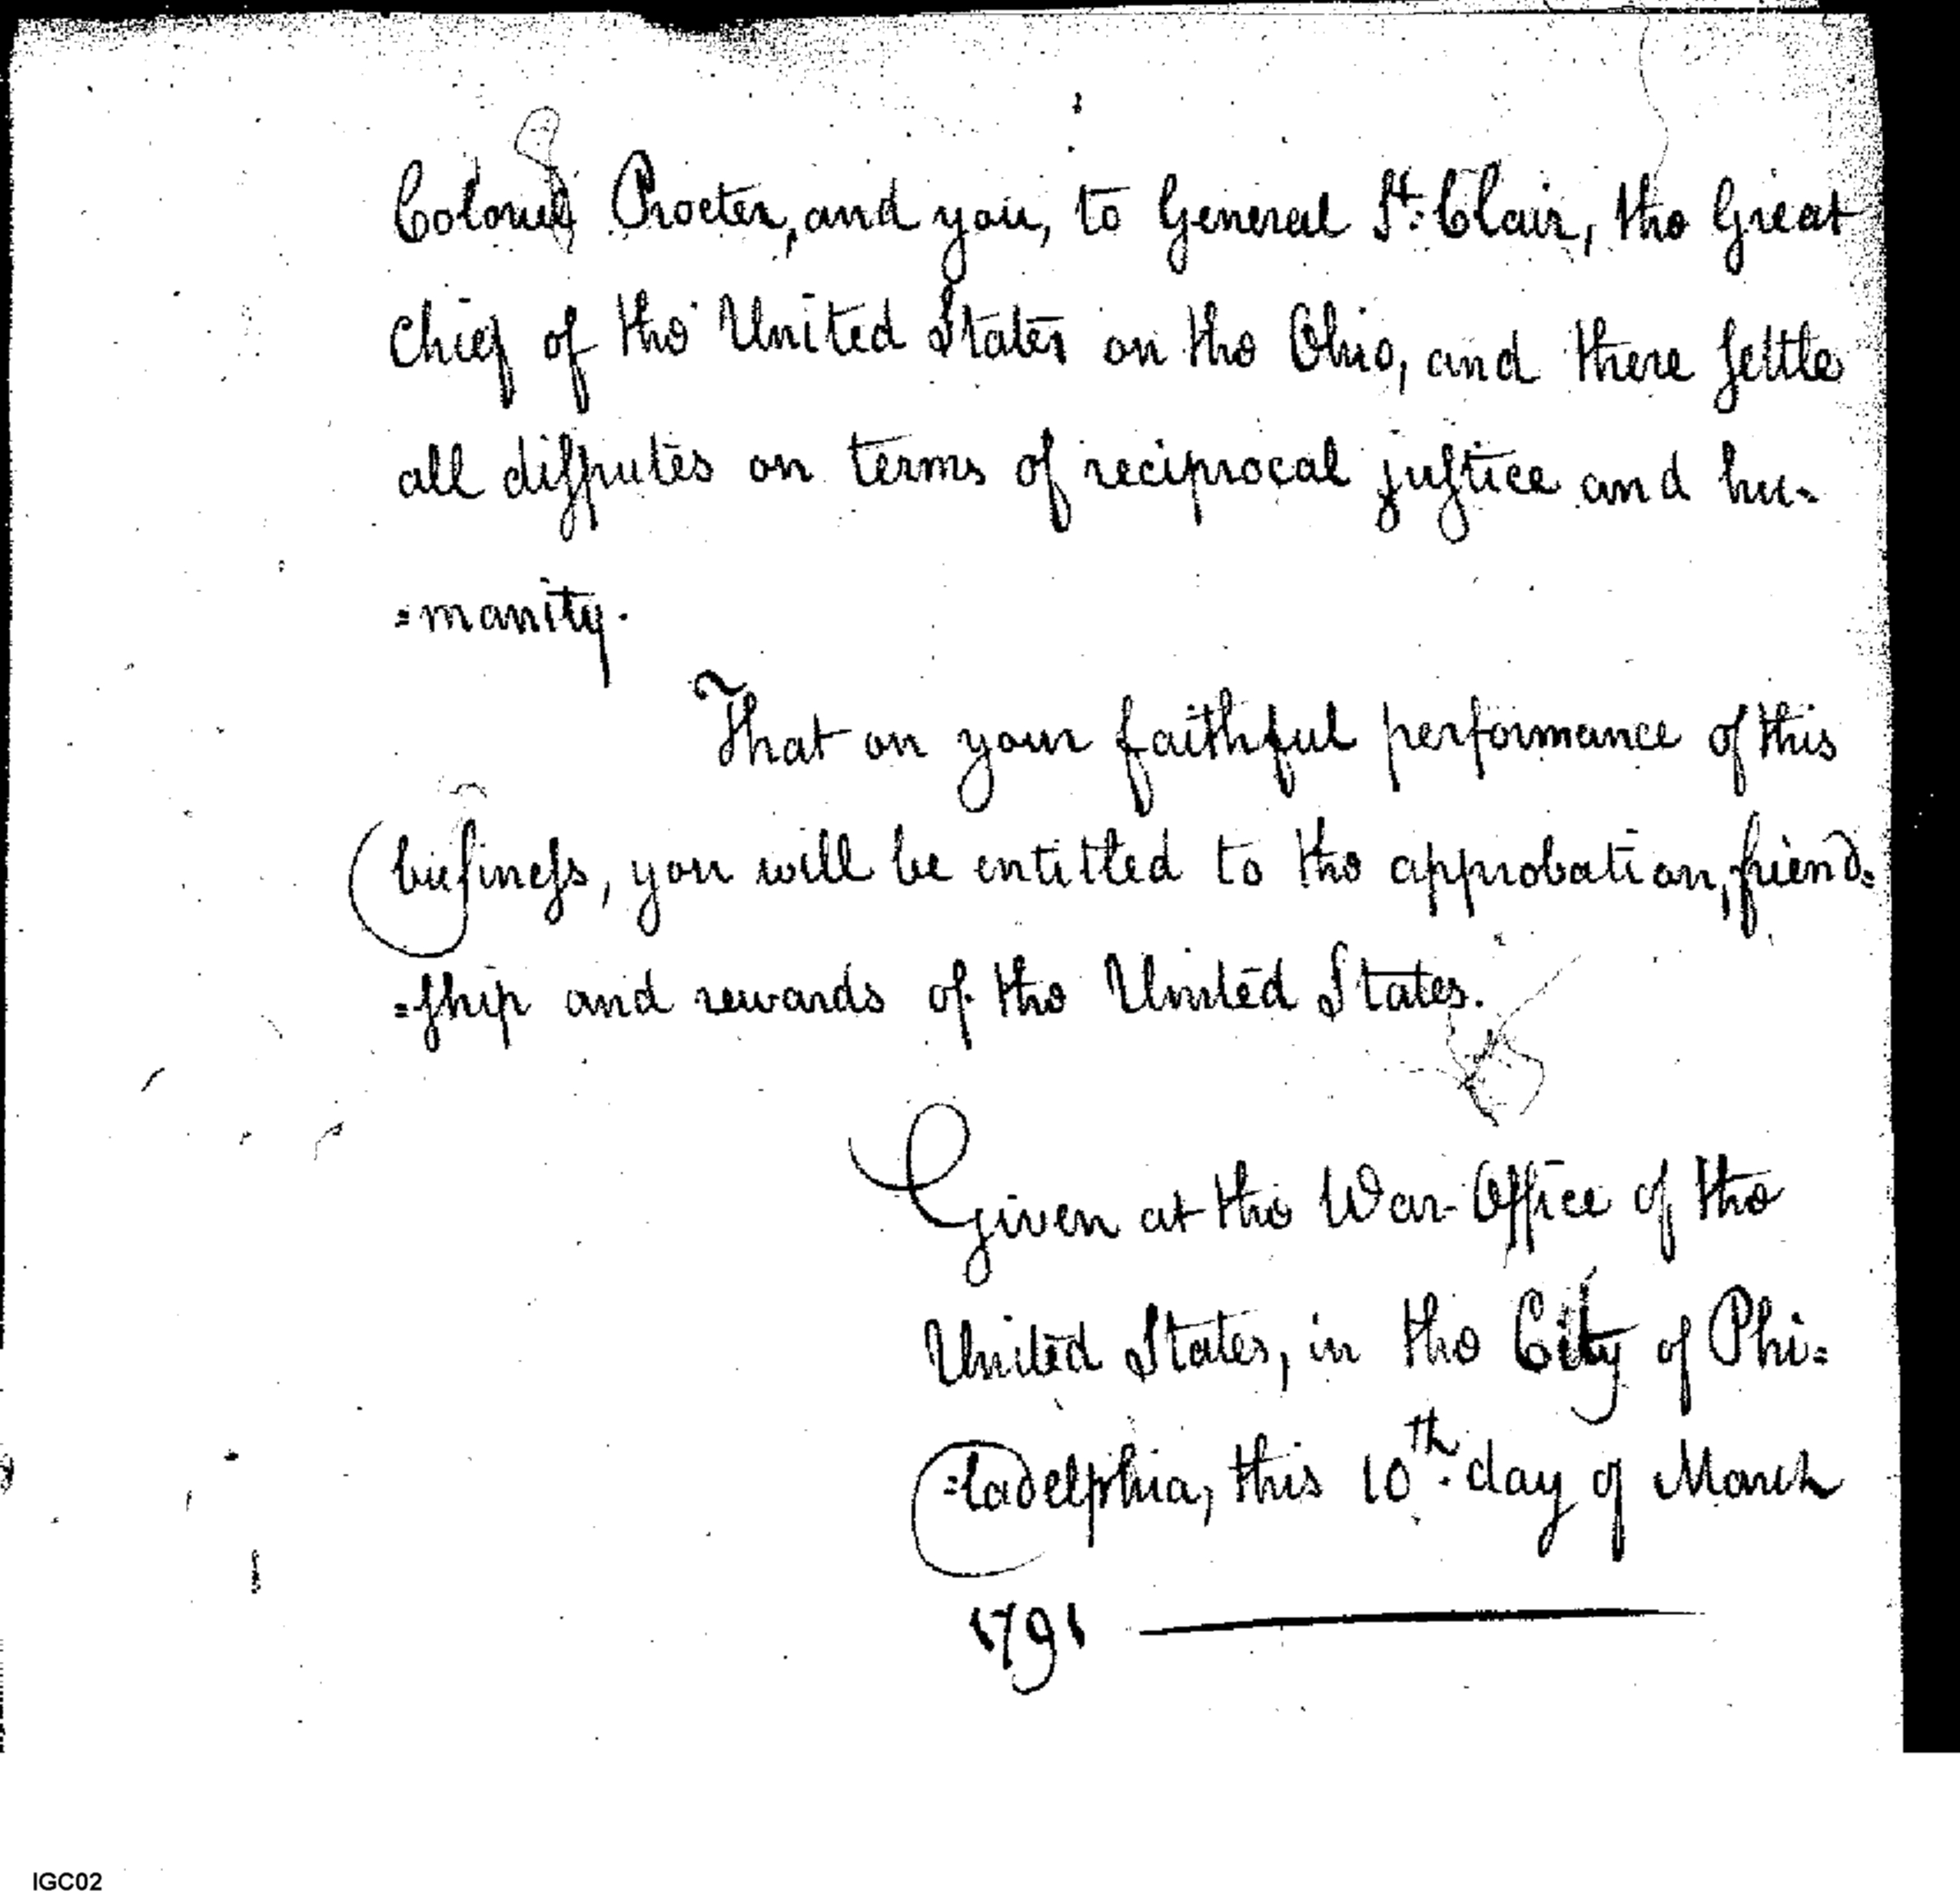 Colonel Procter, and you, to General St. Clair, the Great
Chief of the United States on the Ohio, and there ſettle
all diſputes on terms of reciprocal juſtice and hu-
=manity.
That on your faithful performance of this
buſineſs, you will be entitled to the approbation, friend=
=ſhip and rewards of the United States.
Given at the War-Office of the
United States, in the City of Phi=
=ladelphia, this 10th. day of March
1791
IGC02